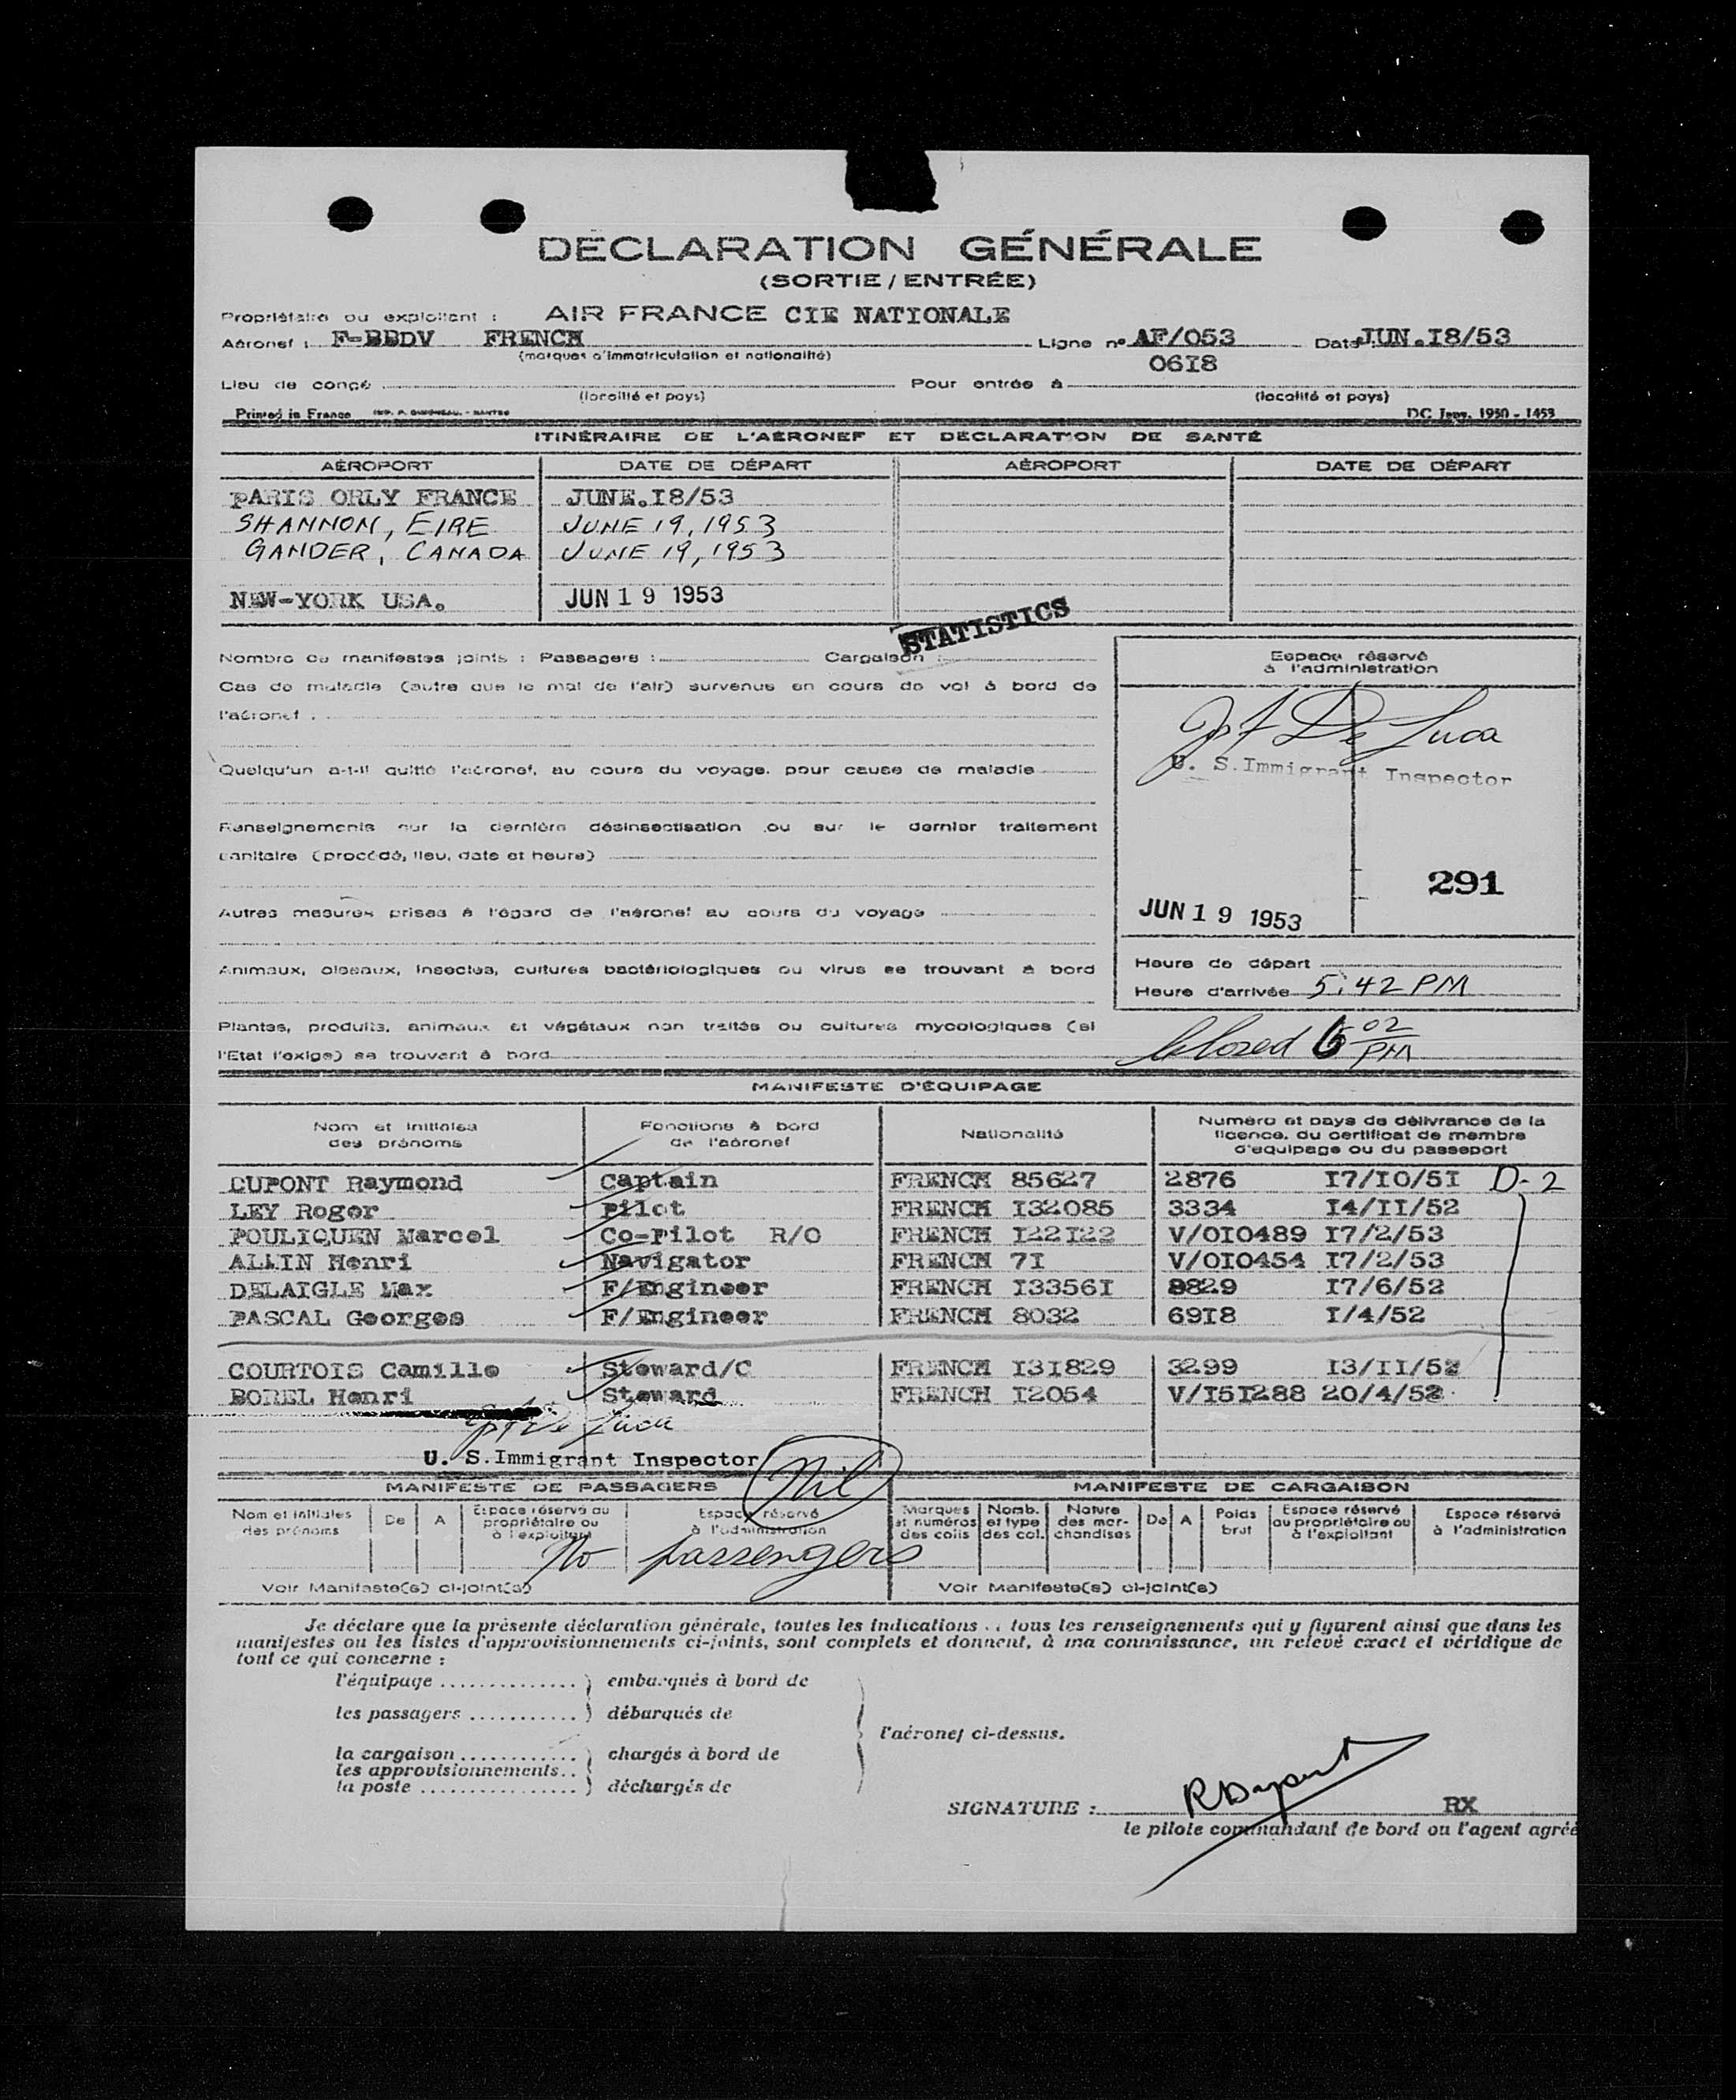 DÉCLARATION GÉNÉRALE
(SORTIE / ENTRÉE)
Propriétaire ou exploitant : AIR FRANCE CIE NATIONALE
Aéronef : F-BBDV FRENCH Ligne n° AF/053 Date JUN.I8/53
(marques d'immatriculation et nationalité) 06I8
Lieu de congé Pour entrée à
(localité et pays) (localité et pays)
Printed in France DC Janv. 1950 - 1453
ITINÉRAIRE DE L'AÉRONEF ET DÉCLARATION DE SANTÉ
AÉROPORT DATE DE DÉPART AÉROPORT DATE DE DÉPART
PARIS ORLY FRANCE JUNE.I8/53
SHANNON, EIRE JUNE 19, 1953
GANDER, CANADA JUNE 19, 1953
NEW-YORK USA. JUN 19 1953
STATISTICS
Nombre de manifestes joints : Passagers : Cargaison :
Espace réservé
à l'administration
Cas de maladie (autre que le mal de l'air) survenus en cours de vol à bord de
l'aéronef :
Jos F De Luca
U. S. Immigrant Inspector
Quelqu'un a-t-il quitté l'aéronef, au cours du voyage, pour cause de maladie
Renseignements sur la dernière désinsectisation ou sur le dernier traitement
sanitaire (procédé, lieu, date et heure)
291
JUN 19 1953
Autres mesures prises à l'égard de l'aéronef au cours du voyage
Animaux, oiseaux, insectes, cultures bactériologiques ou virus se trouvant à bord
Heure de départ
Heure d'arrivée 5:42 PM
Plantes, produits, animaux et végétaux non traités ou cultures mycologiques (si
l'Etat l'exige) se trouvant à bord
Closed 6 02 PM
MANIFESTE D'ÉQUIPAGE
Nom et initiales des prénoms Fonctions à bord de l'aéronef Nationalité Numéro et pays de délivrance de la licence, du certificat de membre d'équipage ou du passeport
DUPONT Raymond Captain FRENCH 85627 2876 I7/IO/5I D-2
LEY Roger Pilot FRENCH I32085 3334 I4/II/52
POULIQUEN Marcel Co-Pilot R/O FRENCH I22I22 V/OI0489 I7/2/53
ALLIN Henri Navigator FRENCH 7I V/OI0454 I7/2/53
DELAIGLE Max F/Engineer FRENCH I3356I 8829 I7/6/52
PASCAL Georges F/Engineer FRENCH 8032 69I8 I/4/52
COURTOIS Camille Steward/C FRENCH I3I829 3299 I3/II/52
BOREL Henri Steward FRENCH I2054 V/I5I288 20/4/52
Jos F De Luca
U. S. Immigrant Inspector
Nil
MANIFESTE DE PASSAGERS MANIFESTE DE CARGAISON
Nom et initiales des prénoms De A Espace réservé au propriétaire ou à l'exploitant Espace réservé à l'administration Marques et numéros des colis Nomb. et type des col. Nature des marchandises De A Poids brut Espace réservé au propriétaire ou à l'exploitant Espace réservé à l'administration
No passengers
Voir Manifeste(s) ci-joint(s) Voir Manifeste(s) ci-joint(s)
Je déclare que la présente déclaration générale, toutes les indications . . tous les renseignements qui y figurent ainsi que dans les
manifestes ou les listes d'approvisionnements ci-joints, sont complets et donnent, à ma connaissance, un relevé exact et véridique de
tout ce qui concerne :
l'équipage .............. } embarqués à bord de
les passagers ........... } débarqués de
l'aéronef ci-dessus.
la cargaison ............ } chargés à bord de
les approvisionnements..
la poste ................ } déchargés de
SIGNATURE : R Dupont RX
le pilote commandant de bord ou l'agent agréé